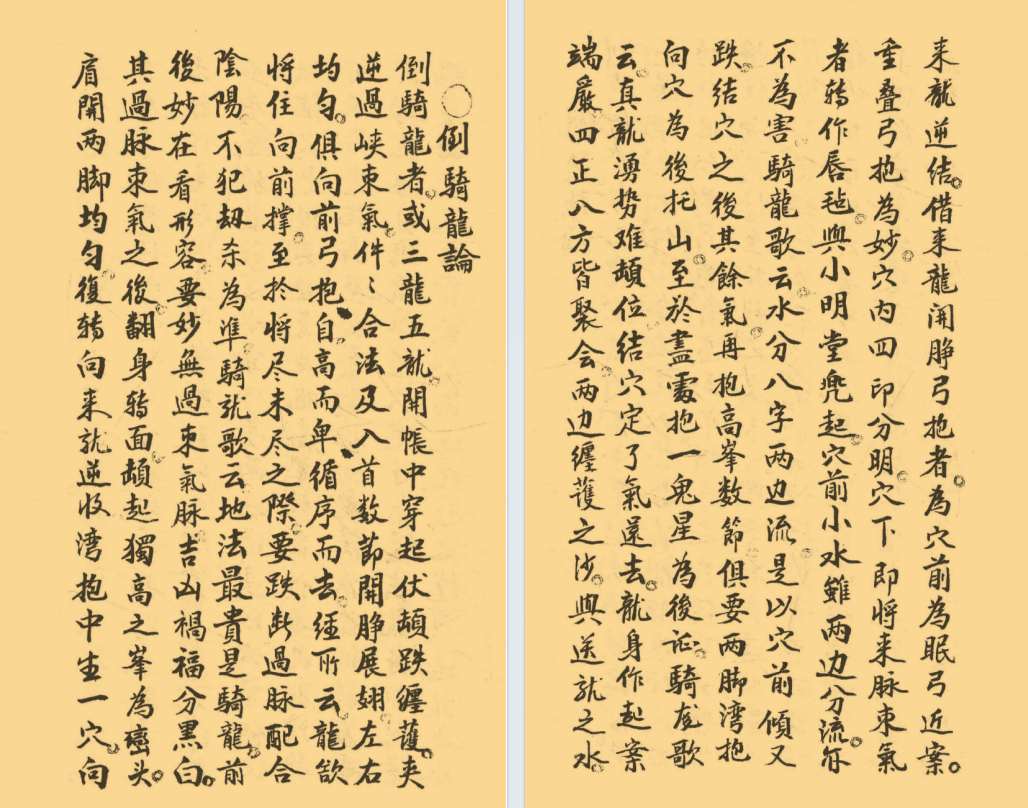 ○倒騎龍論
倒騎龍者或三龍五龍開帳中穿起伏頓跌纏護夾
逆過峽束氣件〻合法及入首数節開睁展翅左右
均匀俱向前弓抱自高而卑循序而去經所云龍欲
将住向前撑至於将尽未尽之際要跌断過脉配合
陰陽不犯刼杀為準騎龙歌云地法最貴是騎龍前
後妙在看形容要妙無過束氣脉吉凶禍福分黑白
其過脉束氣之後翻身转面頓起獨高之峯為頭
肩開两脚均匀復转向来龙逆收湾抱中生一穴向
来龍逆結借来龍開睁弓抱者為穴前為眠弓近案
重叠弓抱為妙穴内四印分明穴下即将来脉束氣
者转作唇毡與小明堂兜起穴前小水雖两边分流
不為害騎龍歌云水分八字两边流是以穴前傾又
跌結穴之後其餘氣再抱高峯数節俱要两脚湾抱
向穴為後托山至於盡處抱一鬼星為後証騎龙歌
云真龍湧势难頓位結穴定了氣還去龍身作起案
端嚴四正八方皆聚会两边纒護之沙與送龙之水